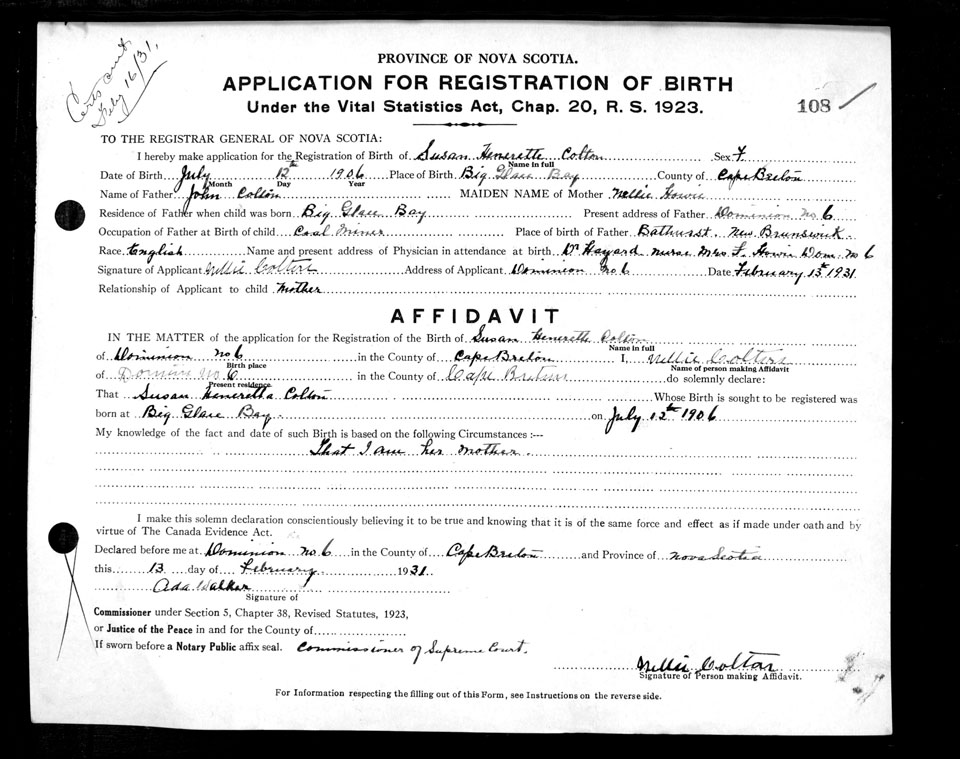 Certs out
Feby 16/31.
PROVINCE OF NOVA SCOTIA.
APPLICATION FOR REGISTRATION OF BIRTH
Under the Vital Statistics Act, Chap. 20, R. S. 1923.
108
TO THE REGISTRAR GENERAL OF NOVA SCOTIA:
I hereby make application for the Registration of Birth of Susan Henerette Colton Sex F
Name in full
Date of Birth July 12th 1906 Place of Birth Big Glace Bay County of Cape Breton
Month Day Year
Name of Father John Colton MAIDEN NAME of Mother Nellie Howie
Residence of Father when child was born Big Glace Bay Present address of Father Dominion No 6
Occupation of Father at Birth of child Coal Miner Place of birth of Father Bathurst. New Brunswick.
Race English Name and present address of Physician in attendance at birth Dr Hayard nurse Mrs F. Howie Dom. No 6
Signature of Applicant Nellie Address of Applicant Dominion No 6 Date February 13th 1931.
Relationship of Applicant to child Mother
AFFIDAVIT
IN THE MATTER of the application for the Registration of the Birth of Susan Henerette Colton
Name in full
of Dominion No 6 in the County of Cape Breton I, Nellie
Birth place Name of person making Affidavit
of No 6 in the County of Cape Breton do solemnly declare:
Present residence
That Susan Heneretta Colton Whose Birth is sought to be registered was
born at Big Glace Bay. on July 12th 1906
My knowledge of the fact and date of such Birth is based on the following Circumstances :—
That I am her Mother.
I make this solemn declaration conscientiously believing it to be true and knowing that it is of the same force and effect as if made under oath and by
virtue of The Canada Evidence Act.
Declared before me at Dominion No 6 in the County of Cape Breton and Province of Nova Scotia
this 13 day of February 1931
Ada Walker
Signature of
Commissioner under Section 5, Chapter 38, Revised Statutes, 1923,
or Justice of the Peace in and for the County of
If sworn before a Notary Public affix seal. Commissioner of Supreme Court.
Nellie Colton
Signature of Person making Affidavit.
For Information respecting the filling out of this Form, see Instructions on the reverse side.